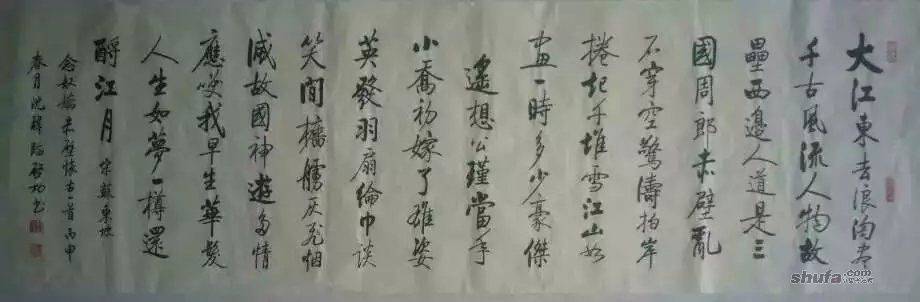 大江東去浪淘盡
千古風流人物故
壘西邊人道是三
國周郎赤壁亂
石穿空驚濤拍岸
捲起千堆雪江山如
畫一時多少豪傑
遙想公瑾當年
小喬初嫁了雄姿
英發羽扇綸巾談
笑間檣艣灰飛烟
滅故國神遊多情
應笑我早生華髮
人生如夢一樽還
酹江月 宋蘇東坡
念奴嬌赤壁懷古一首 丙申
春月沈 臨啓功書
shufa.com